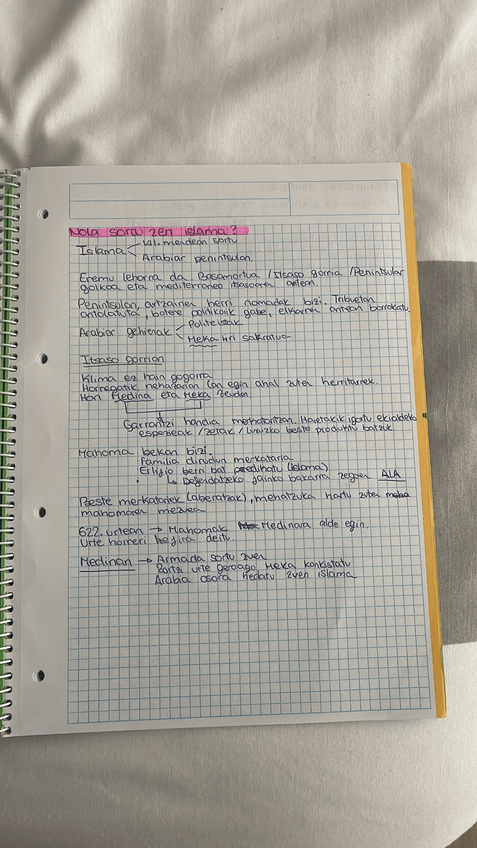 Nola sortu zen islama?
Islama VII. mendean sortu
Arabiar penintsulan
Eremu lehorra da Basamortua / Itsaso gorria / Penintsular
golkoa eta mediterraneo itsasoaren artean.
Penintsulan, artzainen herri nomadak bizi. Tribuetan
antolatuta, botere politikorik gabe, elkarren artean borrokatu.
Arabiar gehienak Politeistak
Meka hiri sakratua
Itsaso gorrian
Klima ez hain gogorra
Horregatik nekazarian lan egin ahal zuten herritarrek.
Han Medina eta Meka zeuden.
Garrantzi handia merkataritzan. Haietakik igortu ekialdeko
espezieak / zetak / luxuzko beste produktu batzuk.
Mahoma bekan bizi.
Familia dirudun merkataria
Erlijio berri bat predikatu (islama)
Defendatzeko jainko bakarra zegoen ALA
Beste merkatariek (aberatzak), mehatzuka hartu zuten
mahomaren mezua
622. urtean → Mahomak Medinara alde egin.
Urte horreri hegira deitu.
Medinan → Armada sortu zuen
Zortzi urte geroago Meka konkistatu
Arabia osora hedatu zuen islama